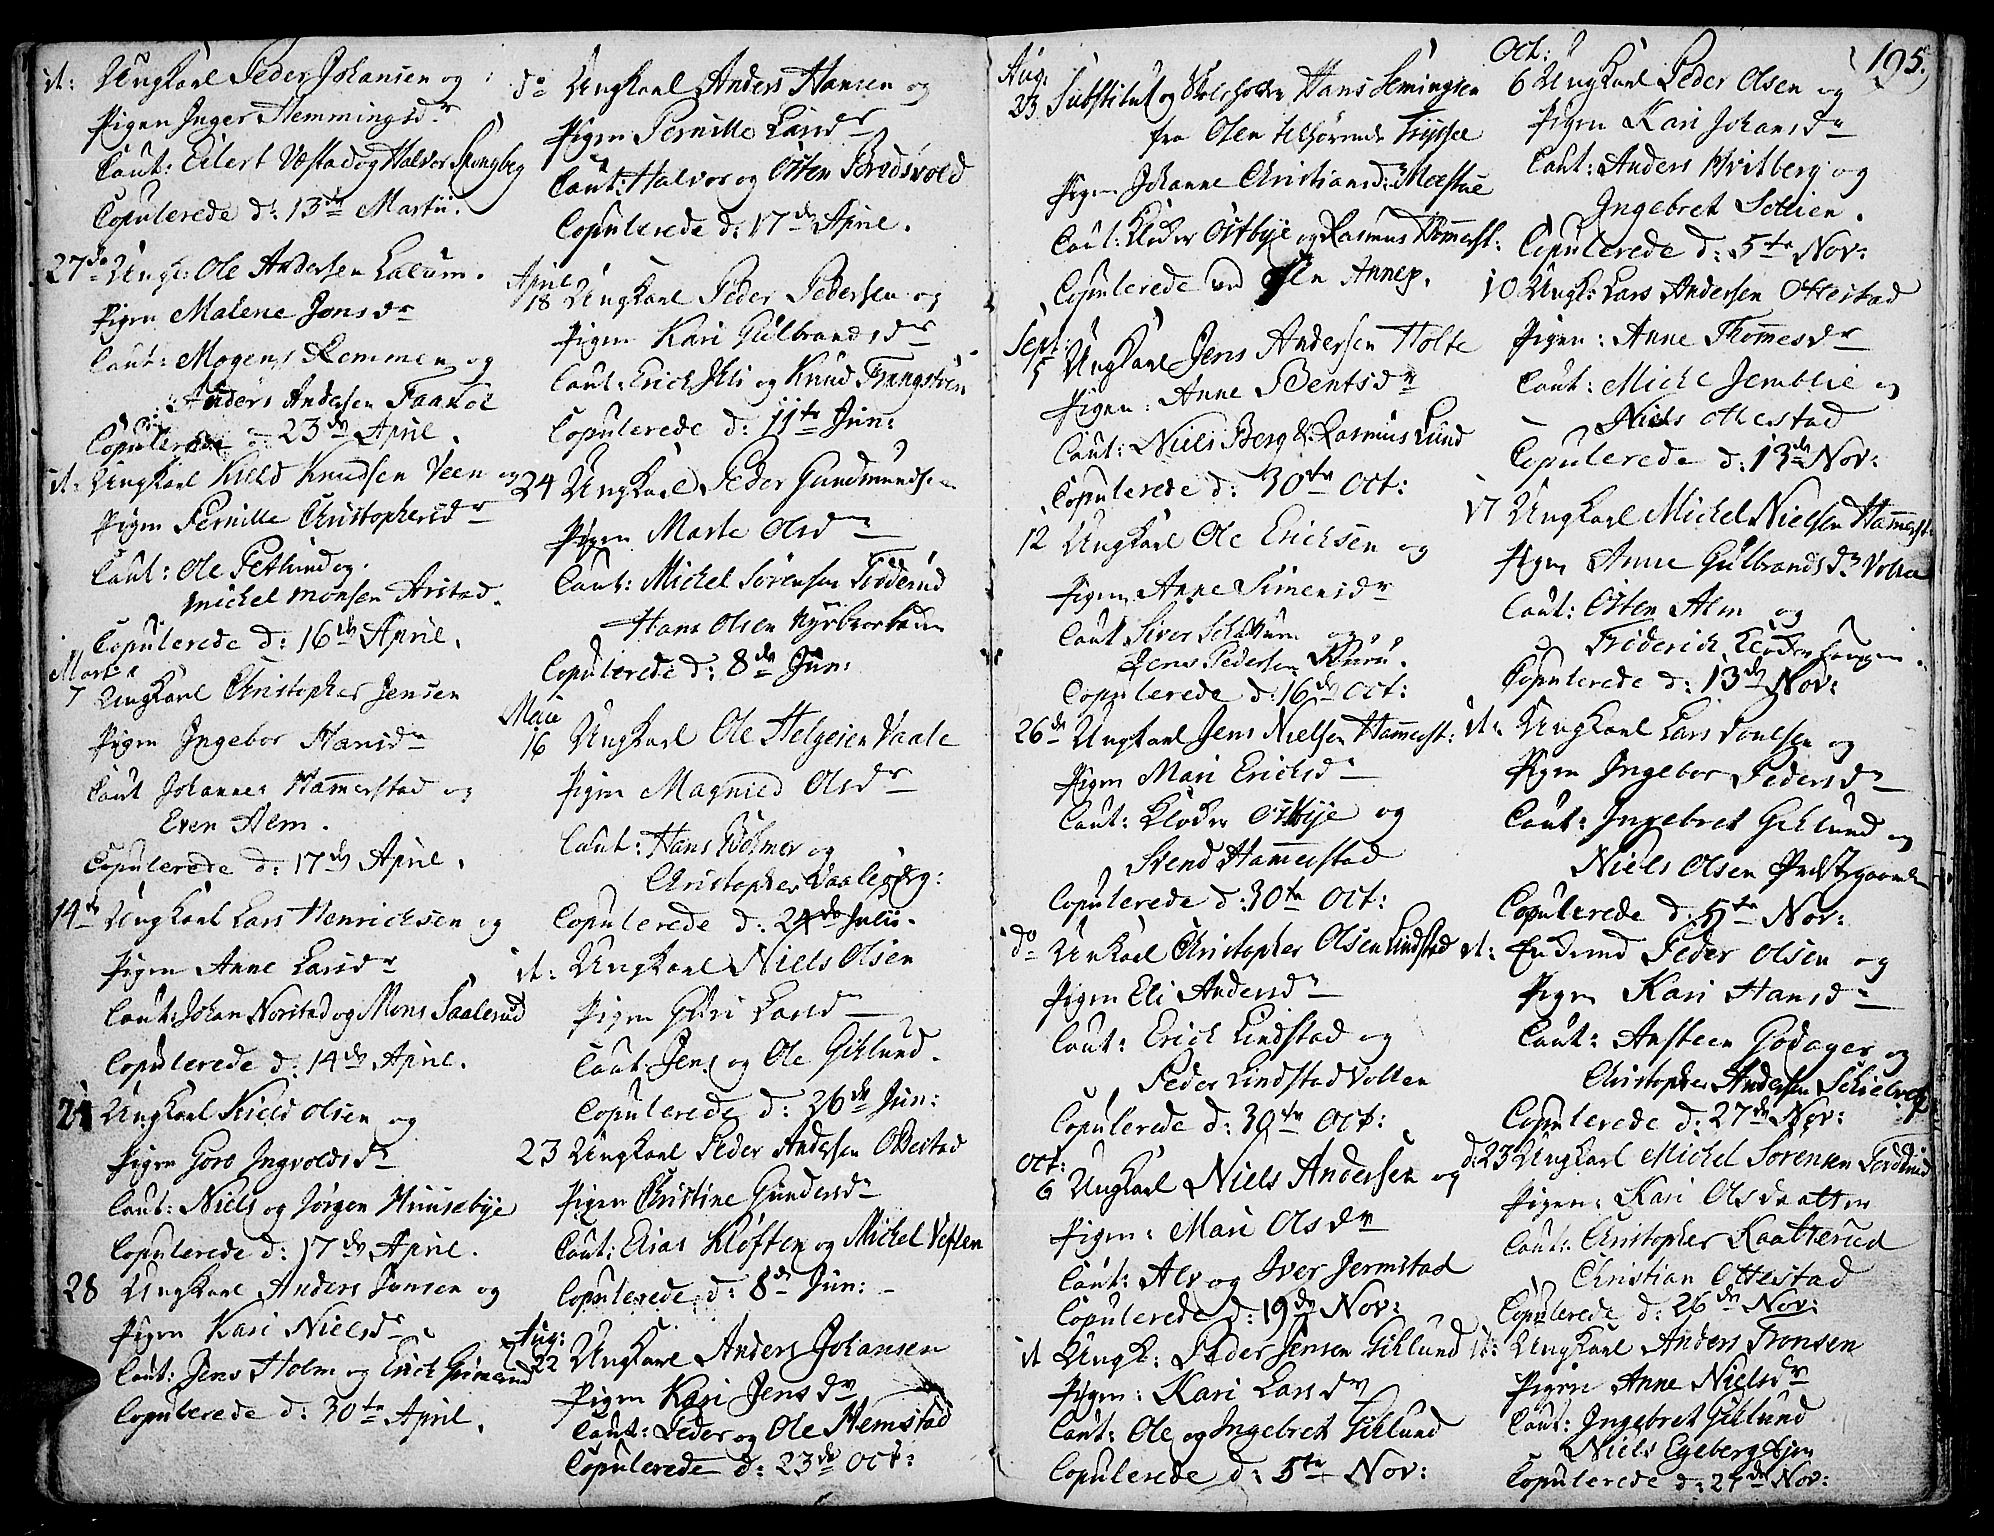 it: Ungkarl Peder Johansen og
Pigen Inger Hemmingsdr
Caut: Eilert Westad og Halvor Skougbeg
Copulerede d: 13de Martii.
27de Ungk: Ole Andersen Lalum.
Pigen Malene Jonsdr
Caut: Mogens Remmen og
Anders Andersen Faakol
Copulerede d: 23de April.
it: Ungkarl Kield Knudsen Veen og
Pigen Pernille Christophersdr
Caut: Ole Petlund og
Michel Monsen Arstad.
Copulerede d: 16de April.
Martii
7 Ungkarl Christopher Jensen
Pigen Ingebor Hansdr
Caut Johannes Hamerstad og
Even Alm.
Copulerede d: 17de April.
14de Ungkarl Lars Henrichsen og
Pigen Anne Larsdr
Caut: Johan Norstad og Mons Saalerud
Copulerede d: 14de April.
21 Ungkarl Kield Olsen og
Pigen Goro Ingvoldsdr
Caut: Niels og Jørgen Huusebye
Copulerede d: 17de April.
28 Ungkarl Anders Jonsen og
Pigen Kari Nielsdr
Caut: Jens Holm og Erich Grimerud
Copulerede d: 30te April.
do Ungkarl Anders Hansen og
Pigen Pernille Larsdr
Caut: Halvor og Østen Bredsvold
Copulerede d: 17de April.
April
18 Ungkarl Peder Pedersen og
Pigen Kari Gulbrandsdr
Caut: Erich Jfli og Knud Frangstuen
Copulerede d: 11te Jun:
24 Ungkarl Peder Gundmundsen
Pigen Marte Olsdr
Caut: Michel Sørensen Froderud
Hans Olsen
Copulerede d: 8de Jun:
Maii
16 Ungkarl Ole Helgesen Vaale
Pigen Magnild Olsdr
Caut: Hans Holmer og
Christopher Vaalebg:
Copulerede d: 24de Julii.
it: Ungkarl Niels Olsen
Pigen Guri Larsdr
Caut: Jens og Ole Giklund.
Copulerede d: 26de Jun:
23 Ungkarl Peder Andersen Ottestad
Pigen Christine Gundersdr
Caut: Elias Kløften og Michel Veflen
Copulerede d: 8de Jun:
Aug:
22 Ungkarl Anders Johansen
Pigen Kari Jensdr
Caut: Peder og Ole Hemstad
Copulerede d: 23de Oct:
Aug.
23 Substitut og Skoleholder Hans Semingsen
fra Olen tilhørende Tryssel
Pigen Johanne Christiansdr Moestue
Caut: Kloder Ostbye og Rasmus Hamerst:
Copulerede ved Annex.
Sept:
5 Ungkarl Jens Andersen Holte
Pigen: Anne Bentsdr
Caut: Niels Berg & Rasmus Lund
Copulerede d: 30te Oct:
12 Ungkarl Ole Erichsen og
Pigen Anne Simensdr
Caut Siver og
Jens Pedersen
Copulerede d: 16de Oct:
26de Ungkarl Jens Nielsen Hamerst:
Pigen Mari Erichsdr
Caut: Kloder Ostbye og
Svend Hammerstad
Copulerede d: 30te Oct:
do Unkarl Christopher Olsen Lindstad
Pigen Eli Andersdr
Caut: Erich Lindstad og
Peder Lindstad Vollen
Copulerede d: 30te Oct:
Oct:
6 Ungkarl Niels Andersen og
Pigen: Mari Olsdr
Caut: Alv og Iver Jermstad
Copulerede d: 19de Nov:
it Ungk: Peder Jensen Giklund
Pigen: Kari Larsdr
Caut: Ole og Ingebret Giklund
Copulerede d: 5te Nov:
195.
Oct:
6 Ungkarl Peder Olsen og
Pigen Kari Johansdr
Caut: Anders Hvitberg og
Ingebret Sollien.
Copulerede d: 5te Nov:
10 Ungk: Lars Andersen Ottestad
Pigen: Anne Thomesdr
Caut: Michel Jemblie og
Niels Ottestad
Copulerede d: 13de Nov:
17 Ungkarl Michel Nielsen Hamerst:
Pigen Anne Gulbrandsdr Volla
Caut: Østen Alm og
Friderich Kloderhaugen.
Copulerede d: 13de Nov:
it: Ungkarl Lars Poulsen og
Pigen Ingebor Pedersdr
Caut: Ingebret Giklund og
Niels Olsen Præstegaarden
Copulerede d: 5te Nov:
it: Enkemd Peder Olsen og
Pigen Kari Hansdr
Caut: Ansteen Godager og
Christopher Andersen
Copulerede d: 27de Nov:
d: 23 Ungkarl Michel Sørensen Frodrud
Pigen: Kari Olsdaatter
Caut: Christopher Kaatterud
Christian Ottestad
Copulerede d: 26de Nov:
it: Ungkarl Anders Tronsen
Pigen Anne Nielsdr
Caut: Ingebret Giklund
Niels Egeberg Ejen
Copulerede d: 27de Nov: